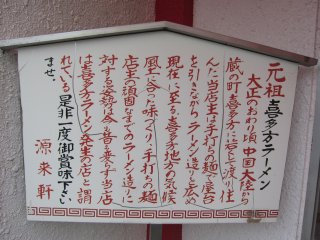 元祖喜多方ラーメン
大正のおわり頃中国大陸から
蔵の町喜多方に若く渡り住
んだ当店主は手打の麺で屋台
を引きながらラーメン造りを広め
現在に至る喜多方地方の気候
風土に合った味つくり、手打ちの麺
店主の頑固なまでのラーメン造りに
対する姿勢は今も昔も変らず当店
は喜多方ラーメン発生の店と謂
れている是非一度御賞味下さい
ませ。
源来軒